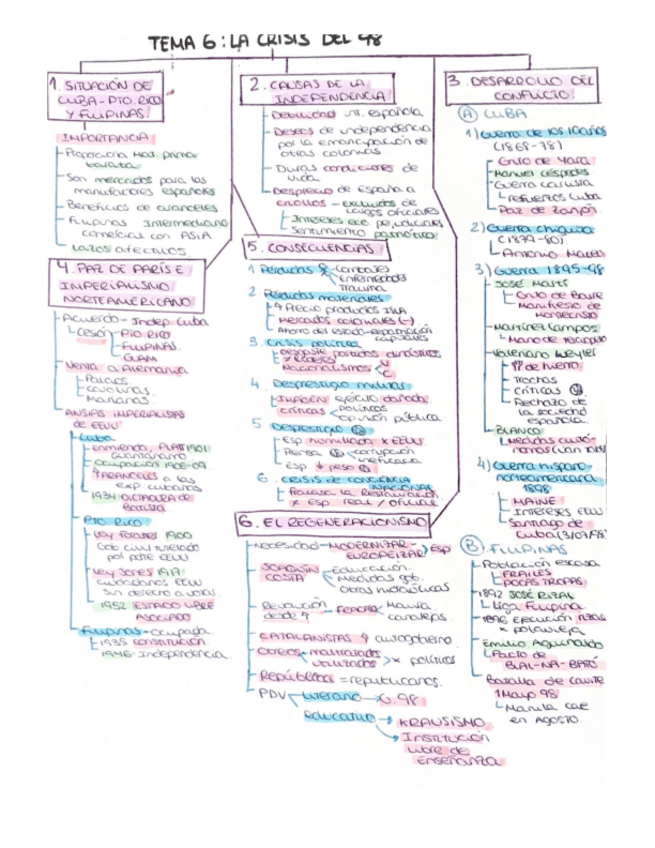 TEMA 6: LA CRISIS DEL 98
1. SITUACIÓN DE
CUBA-PTO. RICO
Y FILIPINAS
IMPORTANCIA
Proporciona Mat. prima
barata
Son mercados para las
manufacturas españolas
Beneficios de aranceles
Filipinas Intermediario
comercial con ASIA
Lazos afectivos
2. CAUSAS DE LA
INDEPENDENCIA
Debilidad española
Deseos de independencia
por la emancipación de
otras colonias
Duras condiciones de
vida
Desprecio de España a
criollos - excluidos de
cargos oficiales
Intereses eco perjudiciales
Sentimiento patriótico
3. DESARROLLO DEL
CONFLICTO
A) CUBA
1) Guerra de los 10 años
(1868-78)
Grito de Yara
Manuel Céspedes
Guerra carlista
refuerzos Cuba
Paz de Zanjón
2) Guerra chiquita
(1879-80)
Antonio Maceo
3) Guerra 1895-98
JOSÉ MARTÍ
Grito de Baire
Manifiesto de
Montecristi
Martínez Campos
Valeriano Weyler
de hierro
Trochas
Críticas
Rechazo de
la sociedad
española
BLANCO
4) Guerra hispano-
norteamericana
1898
MAINE
Intereses EEUU
Santiago de
Cuba (3/07/98)
B) FILIPINAS
Población escasa
FRAILES
POCAS TROPAS
1892 JOSÉ RIZAL
Liga Filipina
1896 Ejecución RIZAL
x polavieja
Emilio Aguinaldo
Pacto de
BIAL-NA-BATÓ
Batalla de Cavite
1 Mayo 98
Manila cae
en AGOSTO
4. PAZ DE PARÍS E
IMPERIALISMO
NORTEAMERICANO
Acuerdo - Indep Cuba
Cesó PTO RICO
FILIPINAS
GUAM
Venta a Alemania
Palaos
Carolinas
Marianas
ANSIAS IMPERIALISTAS
de EEUU
Cuba
Enmienda PLATT 1901
Guantánamo
Ocupación 1906-09
ARANCELES a las
exp. cubanas
1934 DICTADURA DE
Batista
Pto. Rico
Ley Foraker 1900
Gob civil tutelado
por pdte EEUU
Ley Jones 1917
ciudadanos EEUU
sin derecho a voto
1952 ESTADO LIBRE
ASOCIADO
Filipinas - ocupada
1935 CONSTITUCIÓN
1946 Independencia
5. CONSECUENCIAS
1 Pérdidas combates
Enfermedades
Trauma
2. Pérdidas materiales
Precio productos
Mercados coloniales (-)
Ahorro del estado-repatriación
capitales
3. Crisis política
Desgaste partidos dinásticos
Nacionalismos
4. Desprestigio militar
IMAGEN ejército dañada
críticas políticos
opinión pública
5 Desprestigio
Esp humillada x EEUU
Prensa corrupción
ineficacia
Esp peso
6. CRISIS de CONCIENCIA
NACIONAL
Fracasa la Restauración
Esp real / oficial
6. EL REGENERACIONISMO
Necesidad - MODERNIZAR- Esp
EUROPEIZAR
JOAQUÍN
COSTA
Educación
Medidas gob.
Obras hidráulicas
Revolución
desde
FRACASA Maura
Canalejas
CATALANISTAS autogobierno
Obreros maltratados
utilizados x políticos
República = republicanos
PDV LITERARIO G. 98
EDUCATIVO KRAUSISMO
INSTITUCIÓN
LIBRE DE
ENSEÑANZA